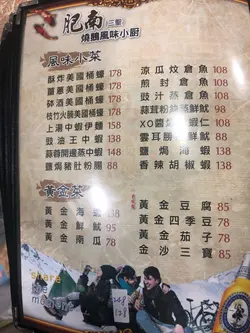 肥南
三聖
燒鵝風味小廚
風味小菜
酥炸美國桶蠔 178
薑蔥美國桶蠔 178
砵酒美國桶蠔 178
枝竹火腩美國桶蠔 178
上湯中蝦伊麵 158
豉油王中蝦 138
蒜蓉開邊蒸中蝦 138
鹽焗豬肚粉腸 88
涼瓜炆倉魚 108
煎封倉魚 108
豉汁蒸倉魚 108
蒜茸粉絲蒸鮮魷 98
XO醬炒蝦仁 108
雲耳勝瓜鮮魷 88
鹽焗海蝦 138
香辣胡椒蝦 138
黃金菜
黃金海蝦 138
黃金鮮魷 95
黃金南瓜 78
黃金豆腐 85
黃金四季豆 78
黃金茄子 78
金沙三寶 85
share